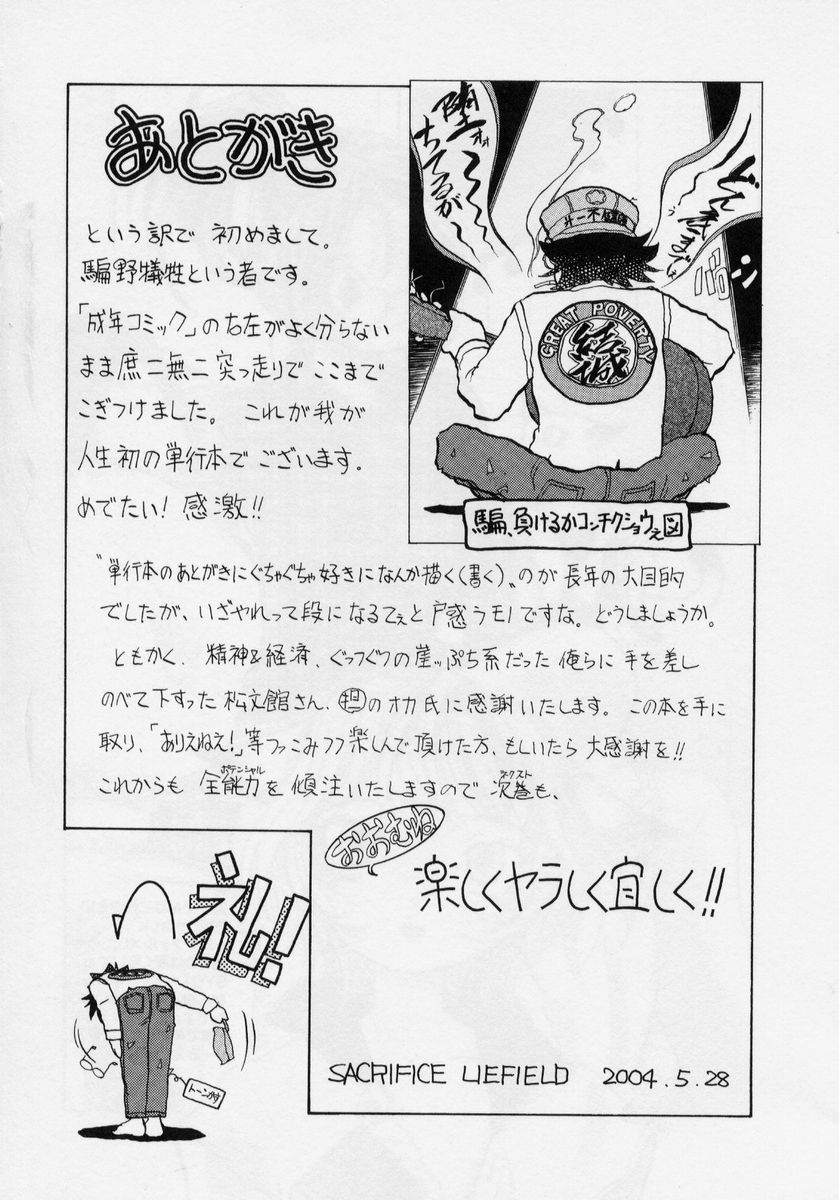 あとがき
という訳で 初めまして。
騙野犠牲という者です。
「成年コミック」の右左がよく分らない
まま庶二無二突っ走りで ここまで
こぎつけました。 これが我が
人生初の単行本でございます。
めでたい! 感激!!
堕ォォ〜〜
ちてるが〜
どん底まで
GREAT POVERTY
結成
騙、負けるかコンチクショウえ図
"単行本のあとがきにぐちゃぐちゃ好きになんか描く(書く)〟のが長年の大目的
でしたが、いざやれって段になるてぇと戸惑うモノですな。どうしましょうか。
ともかく、精神&経済、ぐっつぐつの崖ップち系だった俺らに手を差し
のべて下すった松文館さん、担のオカ氏に感謝いたします。この本を手に
取り、「ありえねえ!」等ツっこみつつ楽しんで頂けた方、もしいたら大感謝を!!
これからも 全能力を傾注いたしますので 次巻も、
ポテンシャル
ネクスト
おおむね
楽しくヤラしく宜しく!!
礼!!
トーンカす
SACRIFICE LIEFIELD 2004.5.28